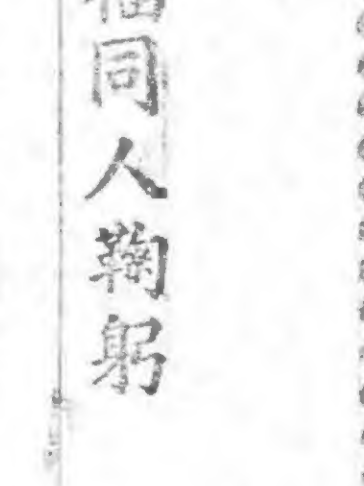 同人鞠躬